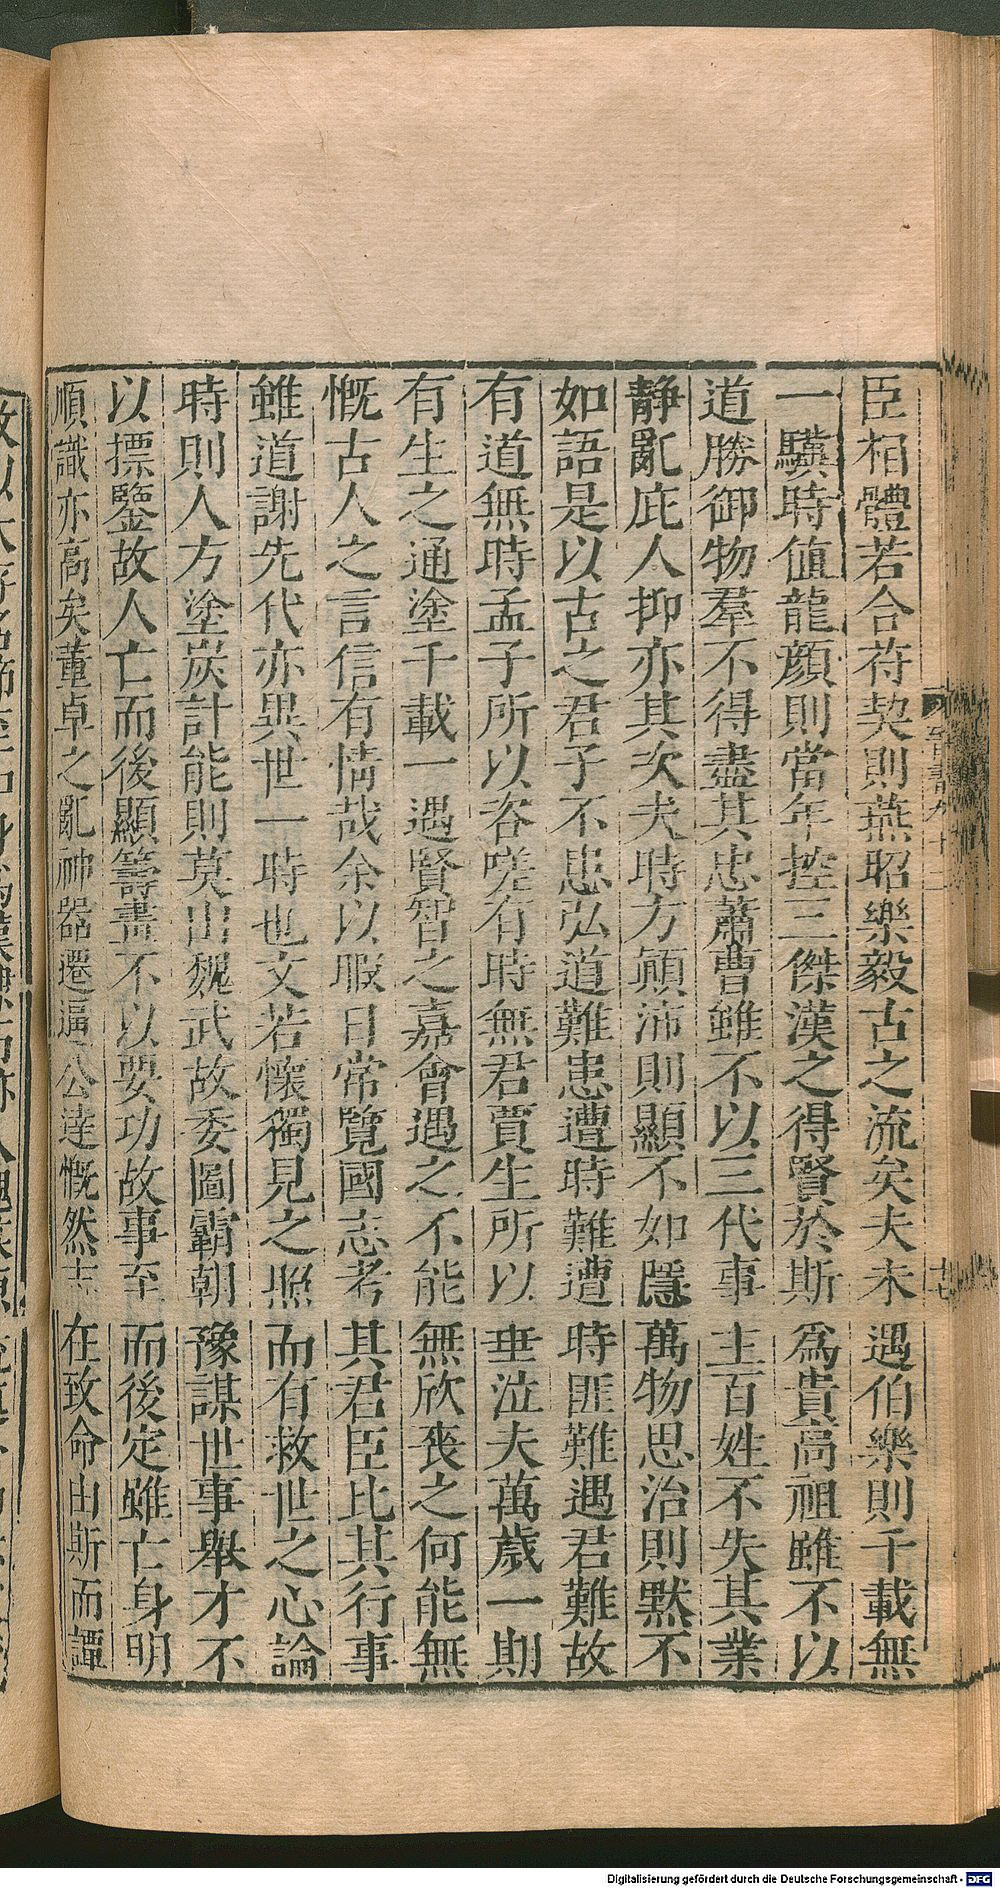 臣相體若合符契則燕昭樂毅古之流矣夫未遇伯樂則千載無
一驥時値龍顔則當年控三傑漢之得賢於斯爲貴高祖雖不以
道勝御物羣不得盡其忠蕭曹雖不以三代事主百姓不失其業
靜亂庇人抑亦其次夫時方顚沛則顯不如隱萬物思治則默不
如語是以古之君子不患弘道難患遭時難遭時匪難遇君難故
有道無時孟子所以咨嗟有時無君賈生所以垂泣夫萬歲一期
有生之通塗千載一遇賢智之嘉會遇之不能無欣喪之何能無
慨古人之言信有情哉余以暇日常覽國志考其君臣比其行事
雖道謝先代亦異世一時也文若懷獨見之照而有救世之心論
時則人方塗炭計能則莫出魏武故委圖霸朝豫謀世事舉才不
以摽鑒故人亡而後顯籌畫不以要功故事至而後定雖亡身明
順識亦高矣董卓之亂神器遷逼公達慨然志在致命由斯而譚
晉書九十二
十七
Digitalisierung gefördert durch die Deutsche Forschungsgemeinschaft - DFG